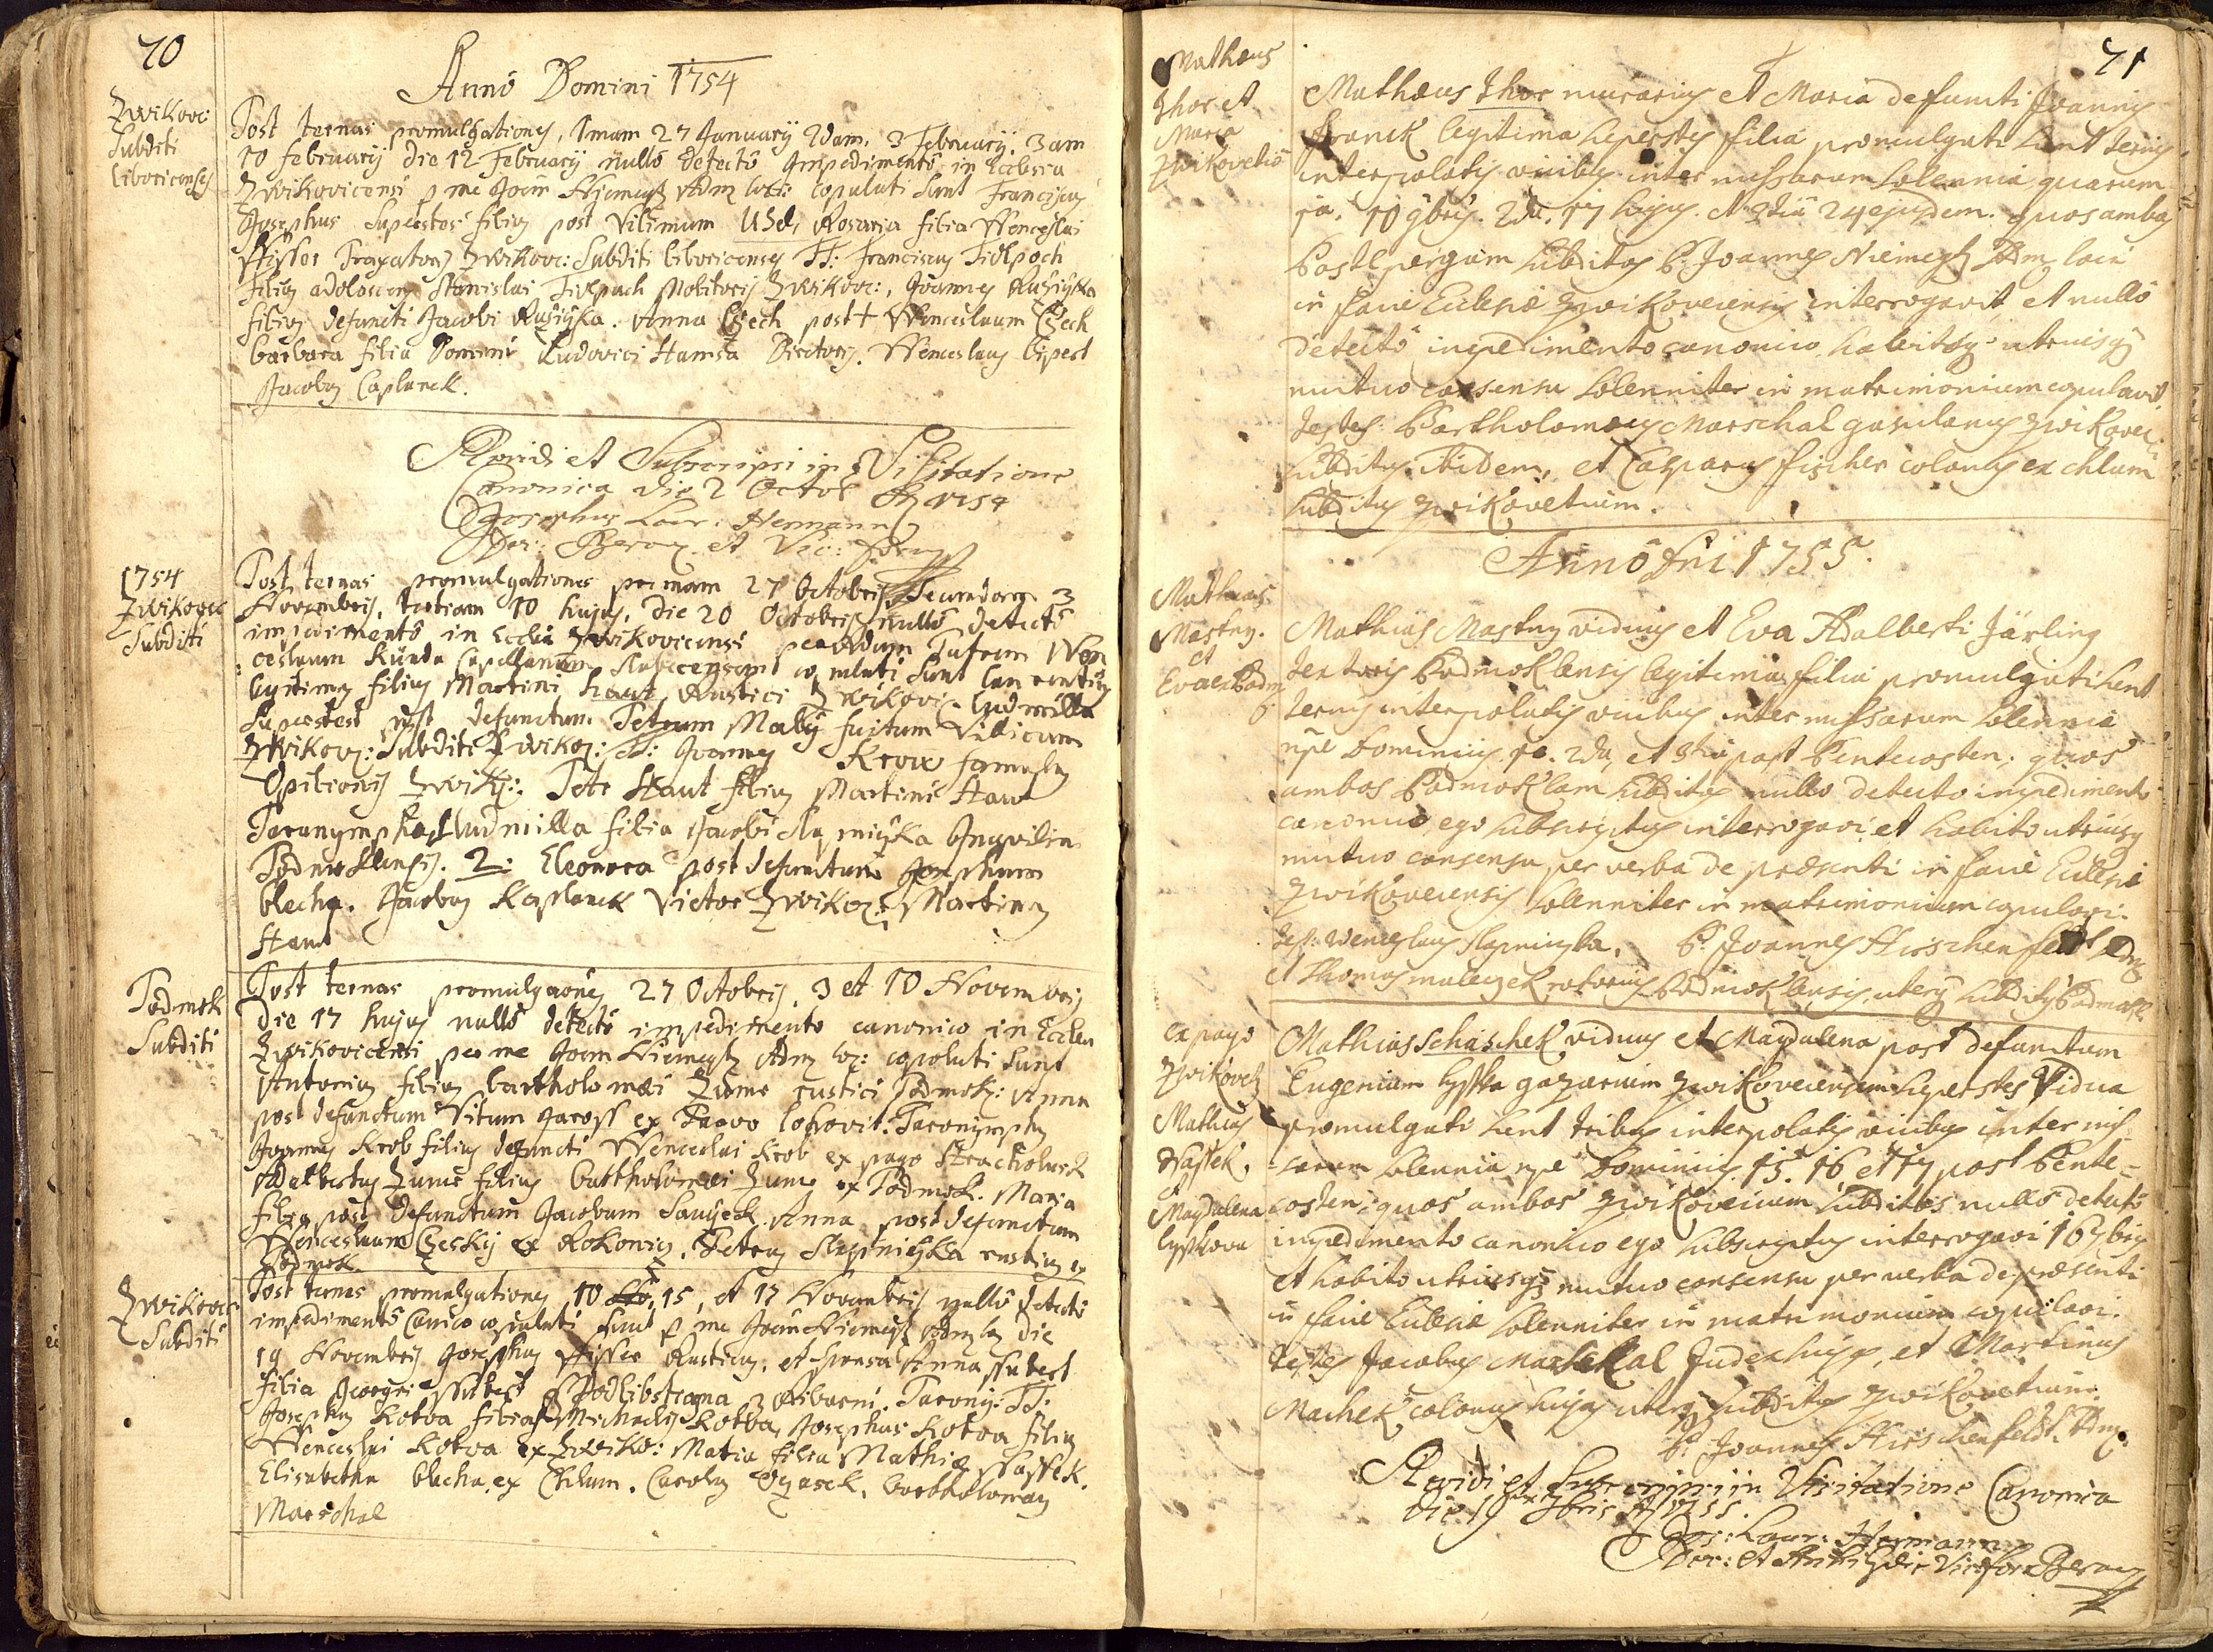 70
Annô Domini 1754
Zwikovc:
Subditi
Libocicenses
Post ternas promulgationes, 1mam 27 January 2dam. 3 February. 3am
10 february die 12 February nullô detectô Impedimentô in Ecclesia
Zwikovicensi p me Joan Niemeytz Adm loci: copulati Sunt Franciscus
Josephus Superstes filius post Vilimum Rosaria filia Wenceslai
Zwikovc: Subditi libocicenses TT: Franciscus Tidlpoch
filius adolescens Stanislai Tidlpach Molitoris Zwikovc:, Joannes Ružiyka
filius defuncti Jacobi Ružiyka. Anna Czech post + Wenceslaum Czech
barbara filia Domini Ludovici Hamsa Directoris. Wenceslaus Lipert
Jacobus Caplanek.
Revidi et Subscripsi in Visitatione
Canonica die 2 Octob A 1754
Josephus Laur: Hermann
Dec: Beroz et Vic: foran
1754
Zwikovec
Subditi
Post ternas promulgationes primam 27 Octobris, Secundam 3
Novembris, tertiam 10 hujus, die 20 Octobris nullô detectô
impedimentô in Ecclia Zwikovicensi per Patrem Wen
ceslaum Kunda Capellanum Slabecensem copulati Sunt Laurentius
legitimus filius Martini Haut Rustici Zwikovc. Ludmilla
Superstes post defunctum Petrum Maly Villicum
Zwikovc: Subditi Zwikoz: TT: Joannes Krov famulus
Opilionis Zwikz:. Petr Haut filius Martini Haut
Paranymphae Ludmilla filia Jacobi Slapniyka Inquilin
Podmoklensis. 2: Eleonora post defunctum Josephum
blecha. Jacobus Kaplanek Victor Zwikoz: Martinus
Haut
Podmok
Subditi
Post ternas promulgaones 27 Octobris, 3 et 10 Novembris
Die 17 hujus nullô detectô impedimento canonico in Ecclesia
Zwikovicensi per me Joan Niemeytz Adm loz: copulati Sunt
Antonius filius bartholomæi Zume rustici Podmok: Anna
post defunctum Vitum Jaross ex Pago Lohovit: Paronymphi
Joannes Krob filius defuncti Wenceslai Krob ex pago Stracholusk
Adalbertus Zume filius barttholomæi Zume ex Podmok. Maria
filia post defunctum Jacobum Saucek. Anna post defunctum
Wenceslaum Czesky ex Rokowiz. Petrus Slapniyka rusticus ex
Podmok.
Zwikovec
Subditi
Post ternas promulgationes 10, 15, et 17 Novembris nullô detectô
impedimentô Canico copulati sunt p me Joan Niemeytz Adm loz die
19 Novembris Josephus Fisser Rusticus, et Sponsa Anna
filia Georgii ex Podlibstrana. Paronij: TT:
Josephus Kotva filius Michaelis Kotva, Josephus Kotva filius
Wenceslai Kotva ex Zwiko: Maria filia Mathiæ Ssassek.
Elisabetha blecha ex Chlum. Carolus Ozasek, bartholomæus
Marschal
71
Mathæus
Thor et
Maria
Zwikovetiô
Mathæus Thor murarius et Maria defuncti Joannis
Franck legitima superstes filia promulgati sunt ternis
interpolatis vicibus inter missarum solennia quarum
1a. 10 9bris. 2da. 17 hujus. et 3tia 24 ejusdem. quos ambos
Postlpergam subditos P. Joannes Niemeytz Adm loci
in facie Ecclesiæ Zwikoveciensis interrogavit et nullô
detectô impedimento canonico habitoq utriusq
mutuo consensu solenniter in matrimonium copulavit.
Testes: Bartholomæus Marschal gasulanus Zwikovec:
subditus ibidem, et Casparus Fischer colonus ex Chlum
subditus Zwikovetium.
Annô Dni 1755.
Mathias
Mastny.
et
Eva ex Podm
Mathias Mastny viduus et Eva Adalberti Järling
textoris Podmoklensis legitima filia promulgati sunt
ternis interpolatis vicibus inter missarum solennia
npe Dominicis 1a. 2da, et 3tia post Pentecosten; quos
ambos Podmoklam subditos nullo detecto impedimento
canonico ego subscriptus interrogavi et habito utriusq
mutuo consensu per verba de præsenti in facie Ecclesiæ
Zwikoveciensis solenniter in matrimonium copulavi.
Test: Wenceslaus Slapniczka, P. Joannes Hirschenfeldt Adm
et Thomas maleczek Podmoklensis, uterq subditus Podmokl.
ex pago
Zwikovetz
Mathias
Ssassek,
et
Magdalena
Lysskova
Mathias Schaschek viduus et Magdalena post defunctum
Eugenium Lysska gazarium Zwikoveciensem superstes vidua
promulgati sunt tribus interpolatis vicibus inter mis¬
sarum solennia npe Dominicis 15. 16. et 17 post Pente=
costen; quos ambos Zwikovecium subditos nullô detectô
impedimento canonico ego subscriptus interrogavi 16 7bris
et habito utriusq; mutuo consensu per verba de præsenti
in facie Ecclesiæ solenniter in matrimonium copulavi.
Testes Jacobus Marschal Judex hujus, et Martinus
Machek, colonus hujus uterq subditus Zwikovetium.
P. Joannes Hirschenfeldt Adm.
Revidi et Subscripsi in Visitatione Canonica
die 19 7bris A 1755.
Jos: Laur: Hermann
Dec: et Vic: foran Beroz